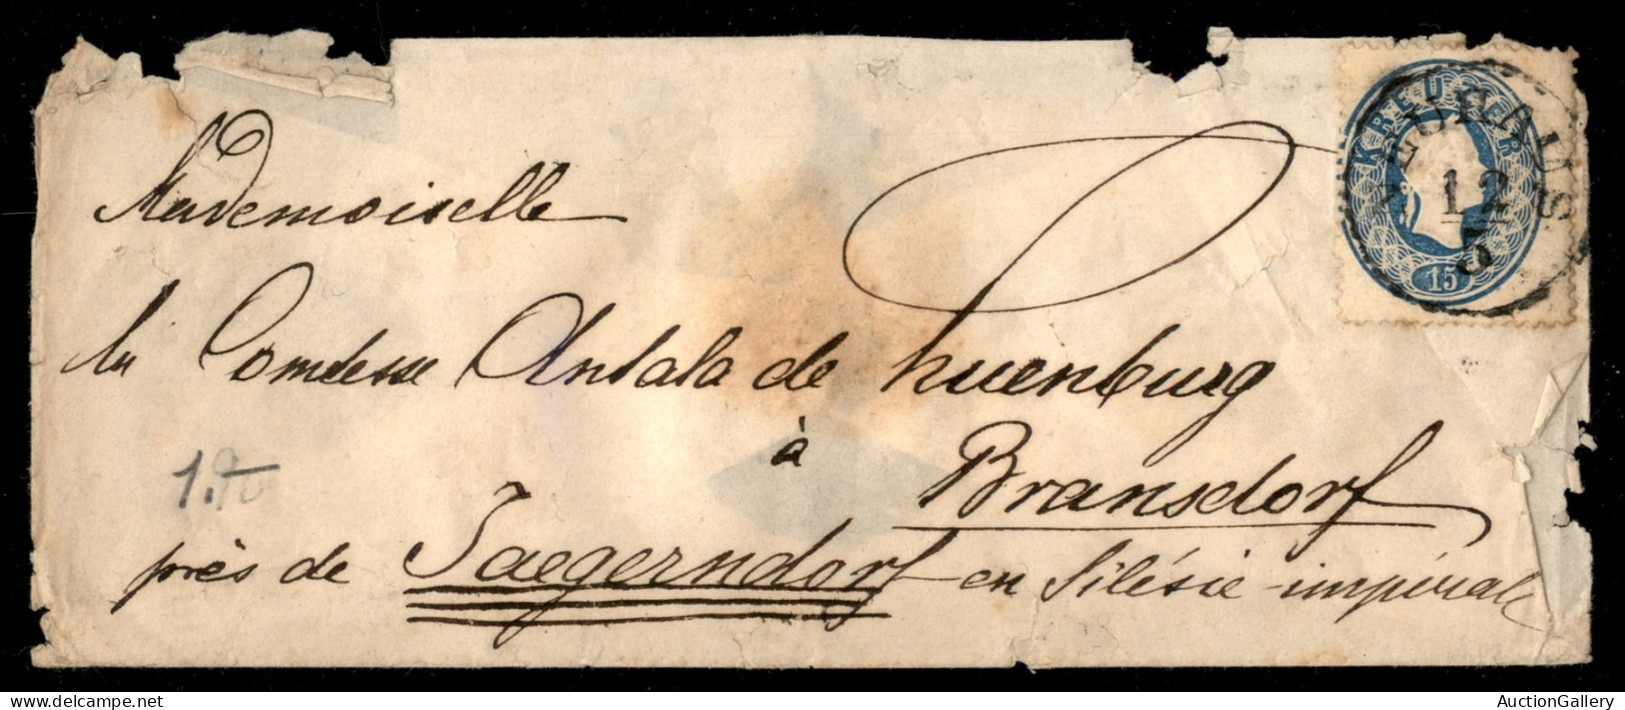 KREUZER
NEUHAUS
12
5
15
Mademoiselle
la Comtesse Antala de Khuenburg
à
Bransdorf
près de Jaegerndorf en Silésie impériale
AuctionGallery